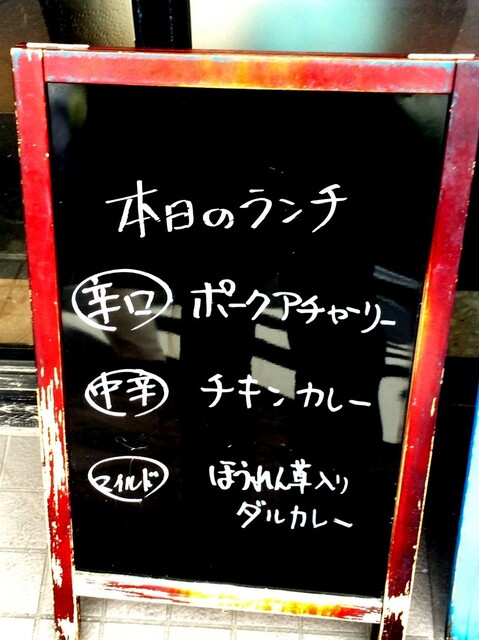 本日のランチ
辛口 ポークアチャーリー
中辛 チキンカレー
マイルド ほうれん草入り
ダルカレー